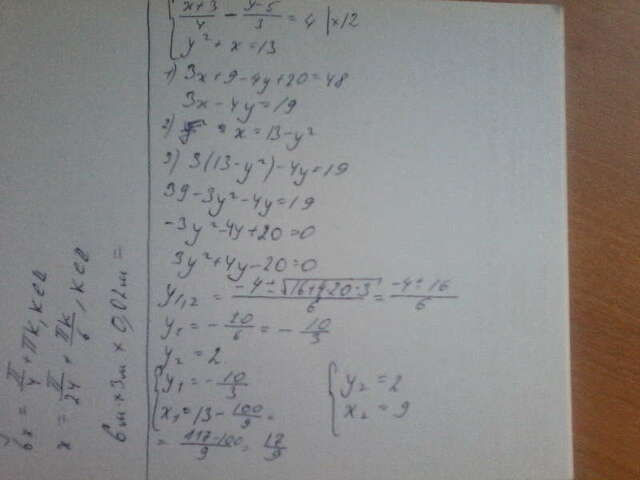 { (x+3)/4 - (y-5)/3 = 4 | ×12
y² + x = 13
1) 3x + 9 - 4y + 20 = 48
3x - 4y = 19
2) x = 13 - y²
3) 3(13 - y²) - 4y = 19
39 - 3y² - 4y = 19
-3y² - 4y + 20 = 0
3y² + 4y - 20 = 0
y₁,₂ = (-4 ± √(16+4·20·3))/6 = (-4 ± 16)/6
y₁ = -20/6 = -10/3
y₂ = 2
{ y₁ = -10/3
x₁ = 13 - 100/9 =
= (117-100)/9 = 17/9
{ y₂ = 2
x₂ = 9
6x = π/4 + πk, k∈Z
x = π/24 + πk/6, k∈Z
6m × 3m × 0,02m =